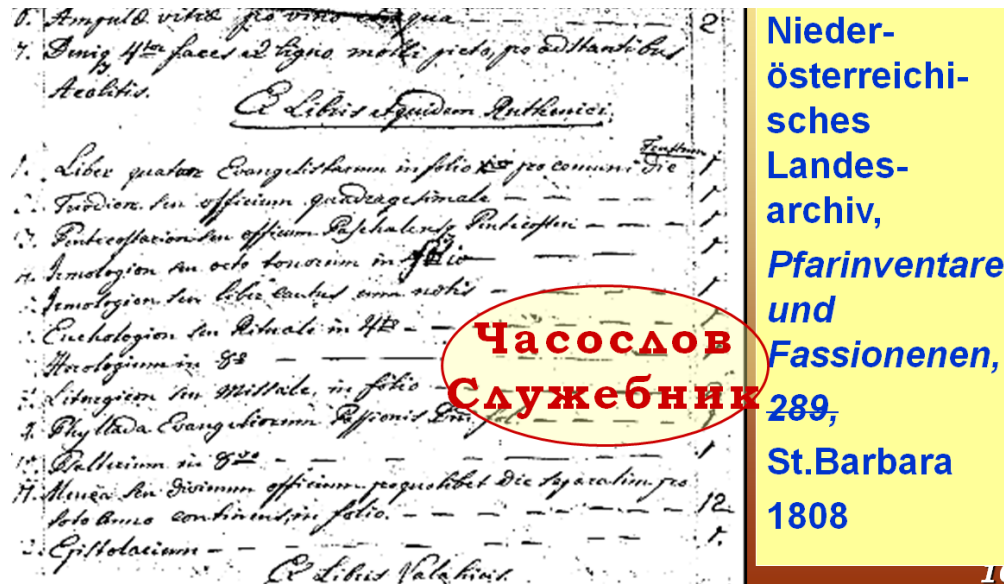 6. Ampulæ vitriæ pro vino et aqua — — — 2
7. Deniq 4tor faces ex ligno molli picto, pro adstantibus
Acolitis.
Ex Libris equidem Ruthenici.
1. Liber quatuor Evangelistarum in folio pro comuni die 1
Triodion seu officium quadragesimale — — — 1
3. Penticostarion seu officium Paschale Penticostes — — 1
4. Irmologion seu octo tonorum in folio — — — 1
Irmologion seu liber cantus cum notis — — — 1
Euchologion seu Rituale in 4to — —
Horologium in 8o — — —
Liturgion seu Missale, in folio —
9. Phyllada Evangeliorum Passionis Dni fol — 1
10. Psalterium in 8vo — — — 1
11. Menea seu divinum officium pro quolibet Die separatim pro
toto Anno continens, in folio. — — — 12
Epistolarium — — — — 1.
Ex Libris Valahicis.
Часослов
Служебник
Nieder-
österreichi-
sches
Landes-
archiv,
Pfarinventare
und
Fassionenen,
289,
St.Barbara
1808